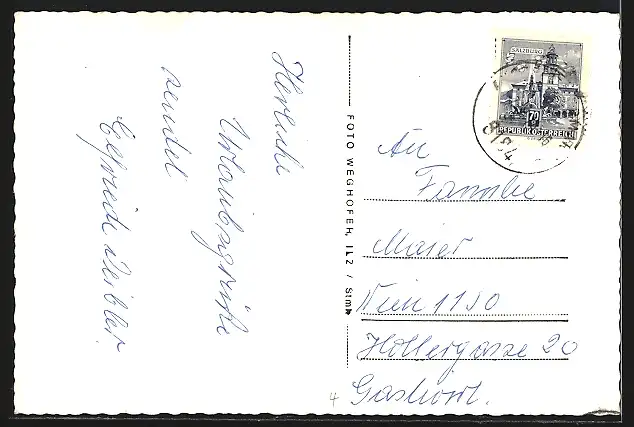 Herzliche
Urlaubsgrüße
sendet
Elfriede
FOTO WEGHOFER, ILZ / Stmk
SALZBURG
70
REPUBLIK ÖSTERREICH
An
Familie
Maier
Wien 1150
Hollergasse 20
Gastwirt.
4